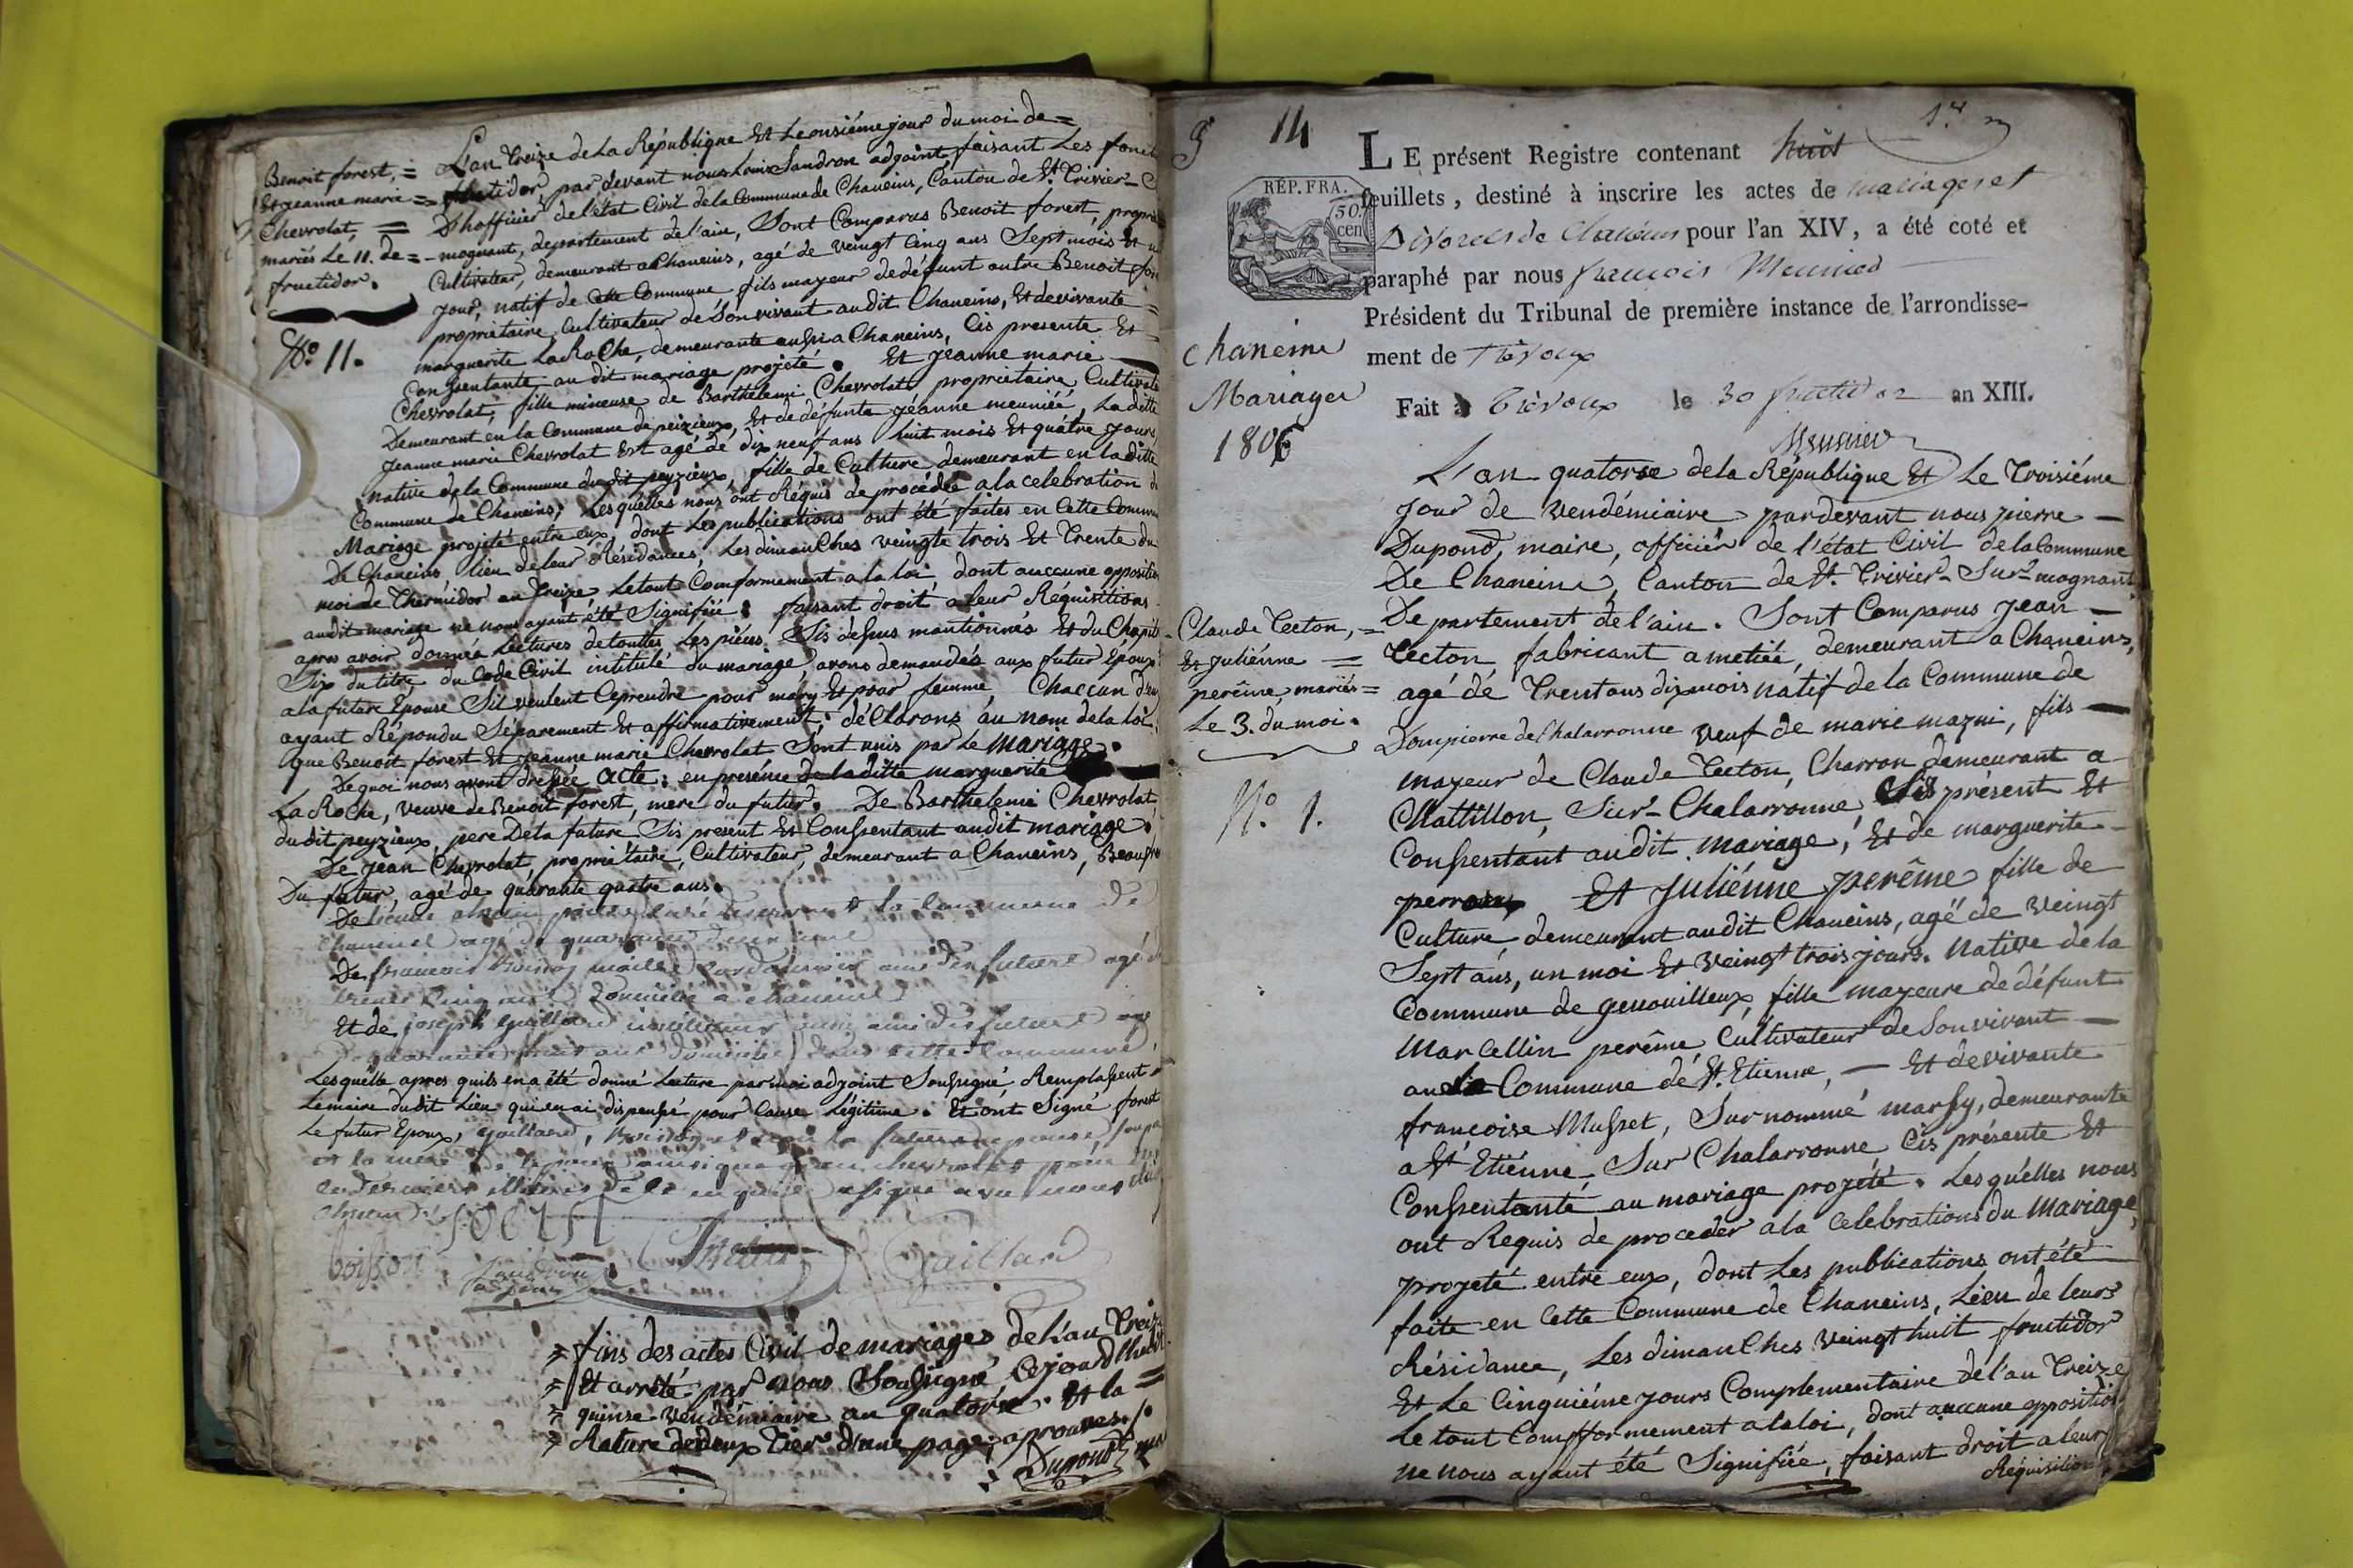 Benoit forest, =
Et jeanne marie =
Chevrolat, =
mariés Le 11. de =
fructidor.
N.º 11.
L'an Treize de La République Et Le onsiéme jour du moi de =
fructidor par devant nous Louis Sandron adjoint faisant Les fonct
D'hofficier de l'état Civil de la Commune de Chaneins, Canton de St. Trivier-
-mognant, departement de l'ain, Sont Comparus Benoit forest, propri
Cultivateur, demeurant a Chaneins, agé de veingt Cinq ans Sept mois Et u
jour, natif de Cette Commune fils mayeur de défunt autre Benoit for
propriétaire Cultivateur de Son vivant au dit Chaneins, Et de vivante =
marguerite La Roche, demeurante aussi a Chaneins, Cis presente Et =
Consentante au dit mariage projeté. Et jeanne marie
Chevrolat, fille mineuse de Barthelemi Chevrolat propriétaire Cultivate
Demeurant en la Commune de peizieux, Et de défunte jéanne meuniéé, La ditte
jeanne marie Chevrolat Est agé de dix neuf ans huit mois Et quatre jours
native de la Commune du dit peyzieux, fille de Culture demeurant en laditte
Commune de Chaneins; Lesquélles nous ont Réquis de procédée a la celebration d
Mariage projeté entre eux, dont Les publications ont été faites en Cette Commu
De Chaneins, lieu de leur Résidances, Les dimanches veingte trois Et Trente du
moi de Thermidor an Treize, Le tout Comformement a la loi, dont auccune oppositio
audit mariage ne nous ayant été Signifiée: faisant droit a leur Réquisitions
apres avoir donnée Lectures de touttes Les piéces Sis dessus mantionnés Et du Chapit
Six du titre du Code Civil intitulé du mariage avons demandés aux futur Epoux
a la future Epouse Sil veulent Ceprendre pour méry Et pour femme, Chaccun d'eux
ayant Répondu Séparement Et affirmativement; déClarons au nom de la loi,
que Benoit forest Et jeanne marie Chevrolat Sont unis par Le Mariage.
De quoi nous avont dressée acte: en présénce de laditte marguerite
La Roche, veuve de Benoit forest, mere du futur. De Barthelemi Chevrolat,
dudit peyzieux, pere De la future Sis présent Et Consentant audit mariage.
De jean Chevrolat, propriétaire, Cultivateur, demeurant a Chaneins, Beaufre
Du futur, agé de quarante quatre ans.
De
chaneins agé de quarante
De francois
domicilié a chaneins
Et de joseph gaillard
Lesquélle apres quils en a été donné Lecture par moi adjoint Soussigné Remplassent
Le maire dudit Lieu qui en ai dispenssé pour Cause Légitime. Et ont Signé forest
Le futur Epoux, gaillard,
boisson
Sandron
adjoint
Gaillard
= fins des actes Civil de mariages de l'an Treize
= Et arrété par nous Soussigné Cejourd'hui
= quinse vendémiaire an quatorse. Et la =
= Rature de deux Tiers d'une page; aprouves./.
Dupond
14
1.er
LE présent Registre contenant huit
feuillets, destiné à inscrire les actes de mariages et
Divorces de Chaneins pour l'an XIV, a été coté et
paraphé par nous francois Meunier
Président du Tribunal de première instance de l'arrondisse-
ment de Trévoux
Fait à Trévoux le 30 fructidor an XIII.
Meunier
RÉP. FRA.
50.
cen
Chaneins
Mariages
1806
Claude Tecton, =
Et Juliénne =
perême, mariés =
Le 3. du moi.
N.º 1.
L'an quatorse de la République Et Le Troisiéme
jour de vendémiaire pardevant nous pierre —
Dupond, maire, officier de l'état Civil de la Commune
De Chaneins, Canton de St. Trivier-Sur-mognant
Departement de l'ain. Sont Comparus jean —
Tecton, fabricant a metiée, demeurant a Chaneins,
agé de Trentans dix mois natif de la Commune de
Dompierre de Chalarronne veuf de marie mazui, fils —
mayeur de Claude Tecton, Charron demeurant a
Chattillon, Sur-Chalarronne, Sis présent Et
Consentant audit mariage, Et de marguerite
perron, Et Juliénne perême fille de
Culture, demeurant audit Chaneins, agé de veingt
Sept ans, un moi Et veingt trois jours. Native de la
Commune de genouilleux, fille mayeure de défunt
Marcellin perême, Cultivateur de Son vivant —
au la Commune de St. Etienne, — Et de vivante
francoise Musset, Surnommé marsy, demeurante
a St Etiénne, Sur Chalarronne, Cis présente Et
Consentante au mariage projété. Lesquélles nous
ont Requis de proceder a la Celebrations du Mariage,
projeté entre eux, dont Les publications ont été
faite en Cette Commune de Chaneins, Lieu de leurs
Résidance, Les dimanches veingt huit fructidor
Et Le Cinquiéme jours Complementaire de l'an Treize
Le tout Compformement a la loi, dont auccune oppositio
ne nous ayant été Signifiée, faisant droit a leur
Réquisition